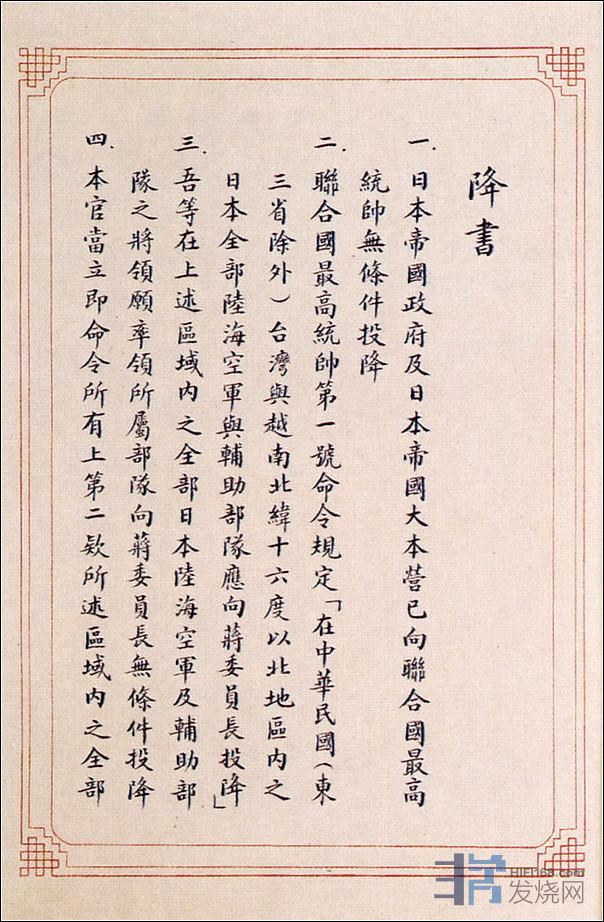 降書
一．日本帝國政府及日本帝國大本營已向聯合國最高
統帥無條件投降
二．聯合國最高統帥第一號命令規定「在中華民國（東
三省除外）台灣與越南北緯十六度以北地區内之
日本全部陸海空軍與輔助部隊應向蔣委員長投降」
三．吾等在上述區域内之全部日本陸海空軍及輔助部
隊之將領願率領所屬部隊向蔣委員長無條件投降
四．本官當立即命令所有上第二欵所述區域内之全部
HIFI168.com
发烧网